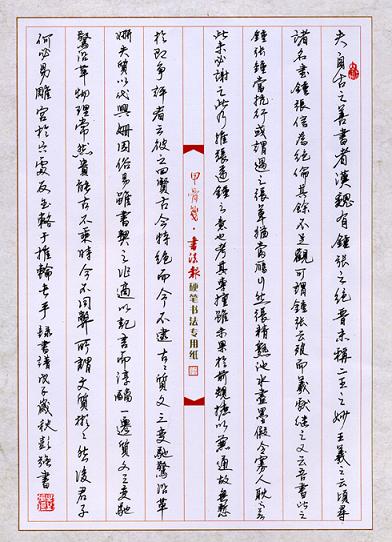 夫自古之善書者漢魏有鍾張之絕晉末稱二王之妙王羲之云頃尋
諸名書鍾張信為絕倫其餘不足觀可謂鍾張云沒而羲獻繼之又云吾書比之
鍾張鍾當抗行或謂過之張草猶當雁行然張精熟池水盡墨假令寡人耽之若
此未必謝之此乃推張邁鍾之意也考其專擅雖未果於前規摭以兼通故無慚
書法報硬笔书法专用纸
於即事評者云彼之四賢古今特絕而今不逮古々質文三變馳騖沿革
妍夫質以代興妍因俗易雖書契之作適以記言而淳醨一遷質文三變馳
騖沿革物理常然貴能古不乖時今不同弊所謂文質彬々然後君子
何必易雕宮於穴處反玉輅于椎輪者乎錄書譜戊子歲秋彭強書